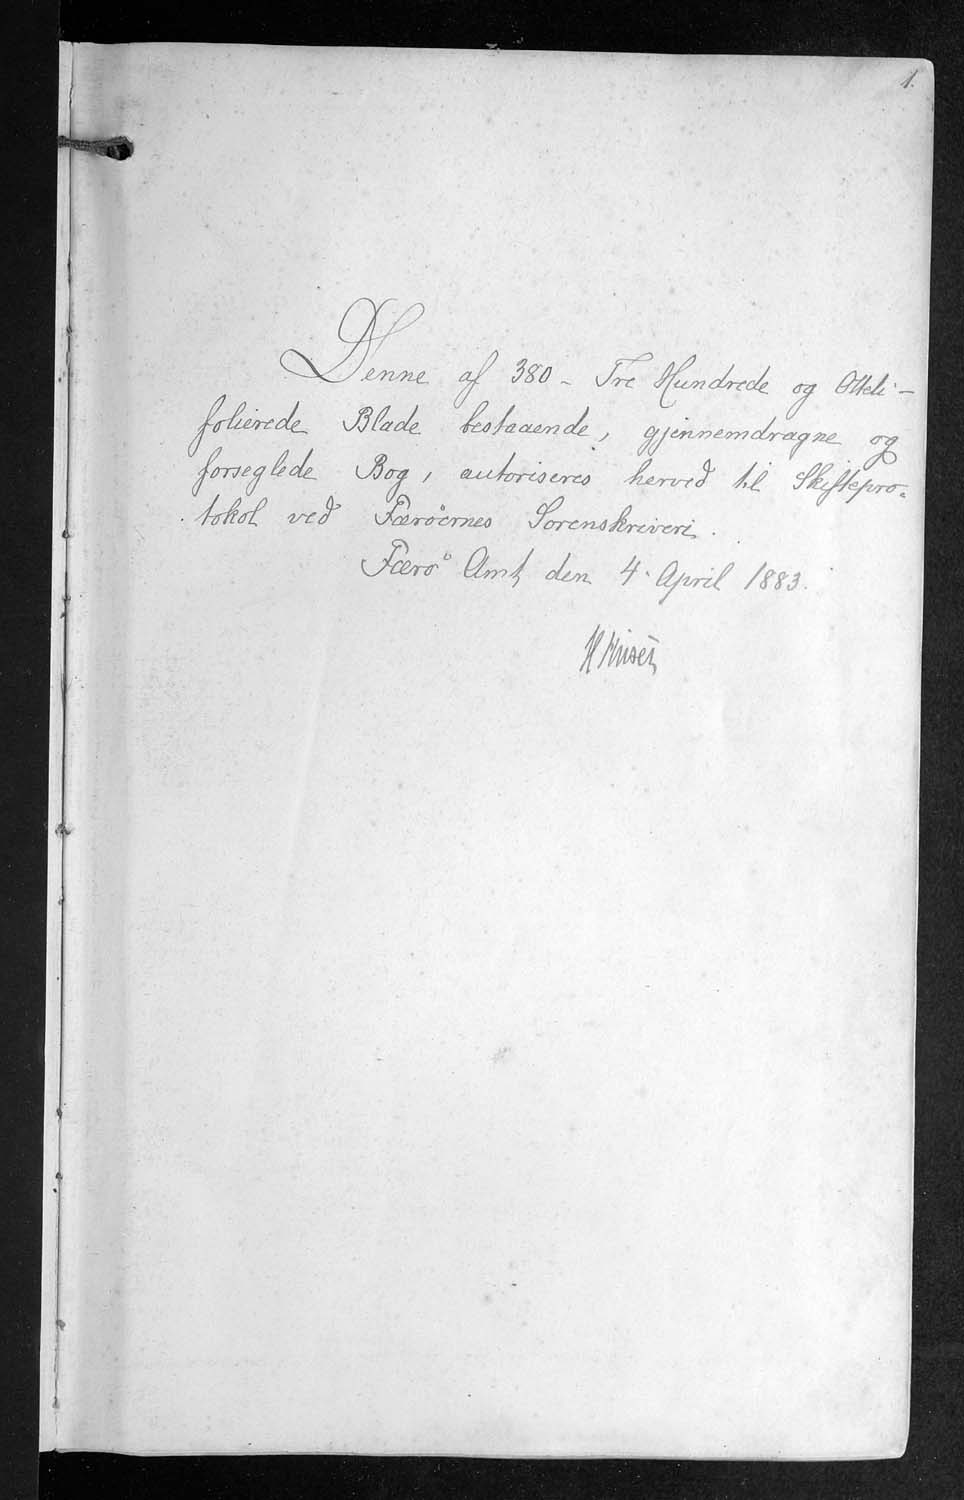 1.
Denne af 380 - Tre Hundrede og Otteti -
folierede Blade bestaaende, gjennemdragne og
forseglede Bog, autoriseres herved til Skiftepro-
tokol ved Færöernes Sorenskriveri.
Færö Amt, den 4. April 1883.
H